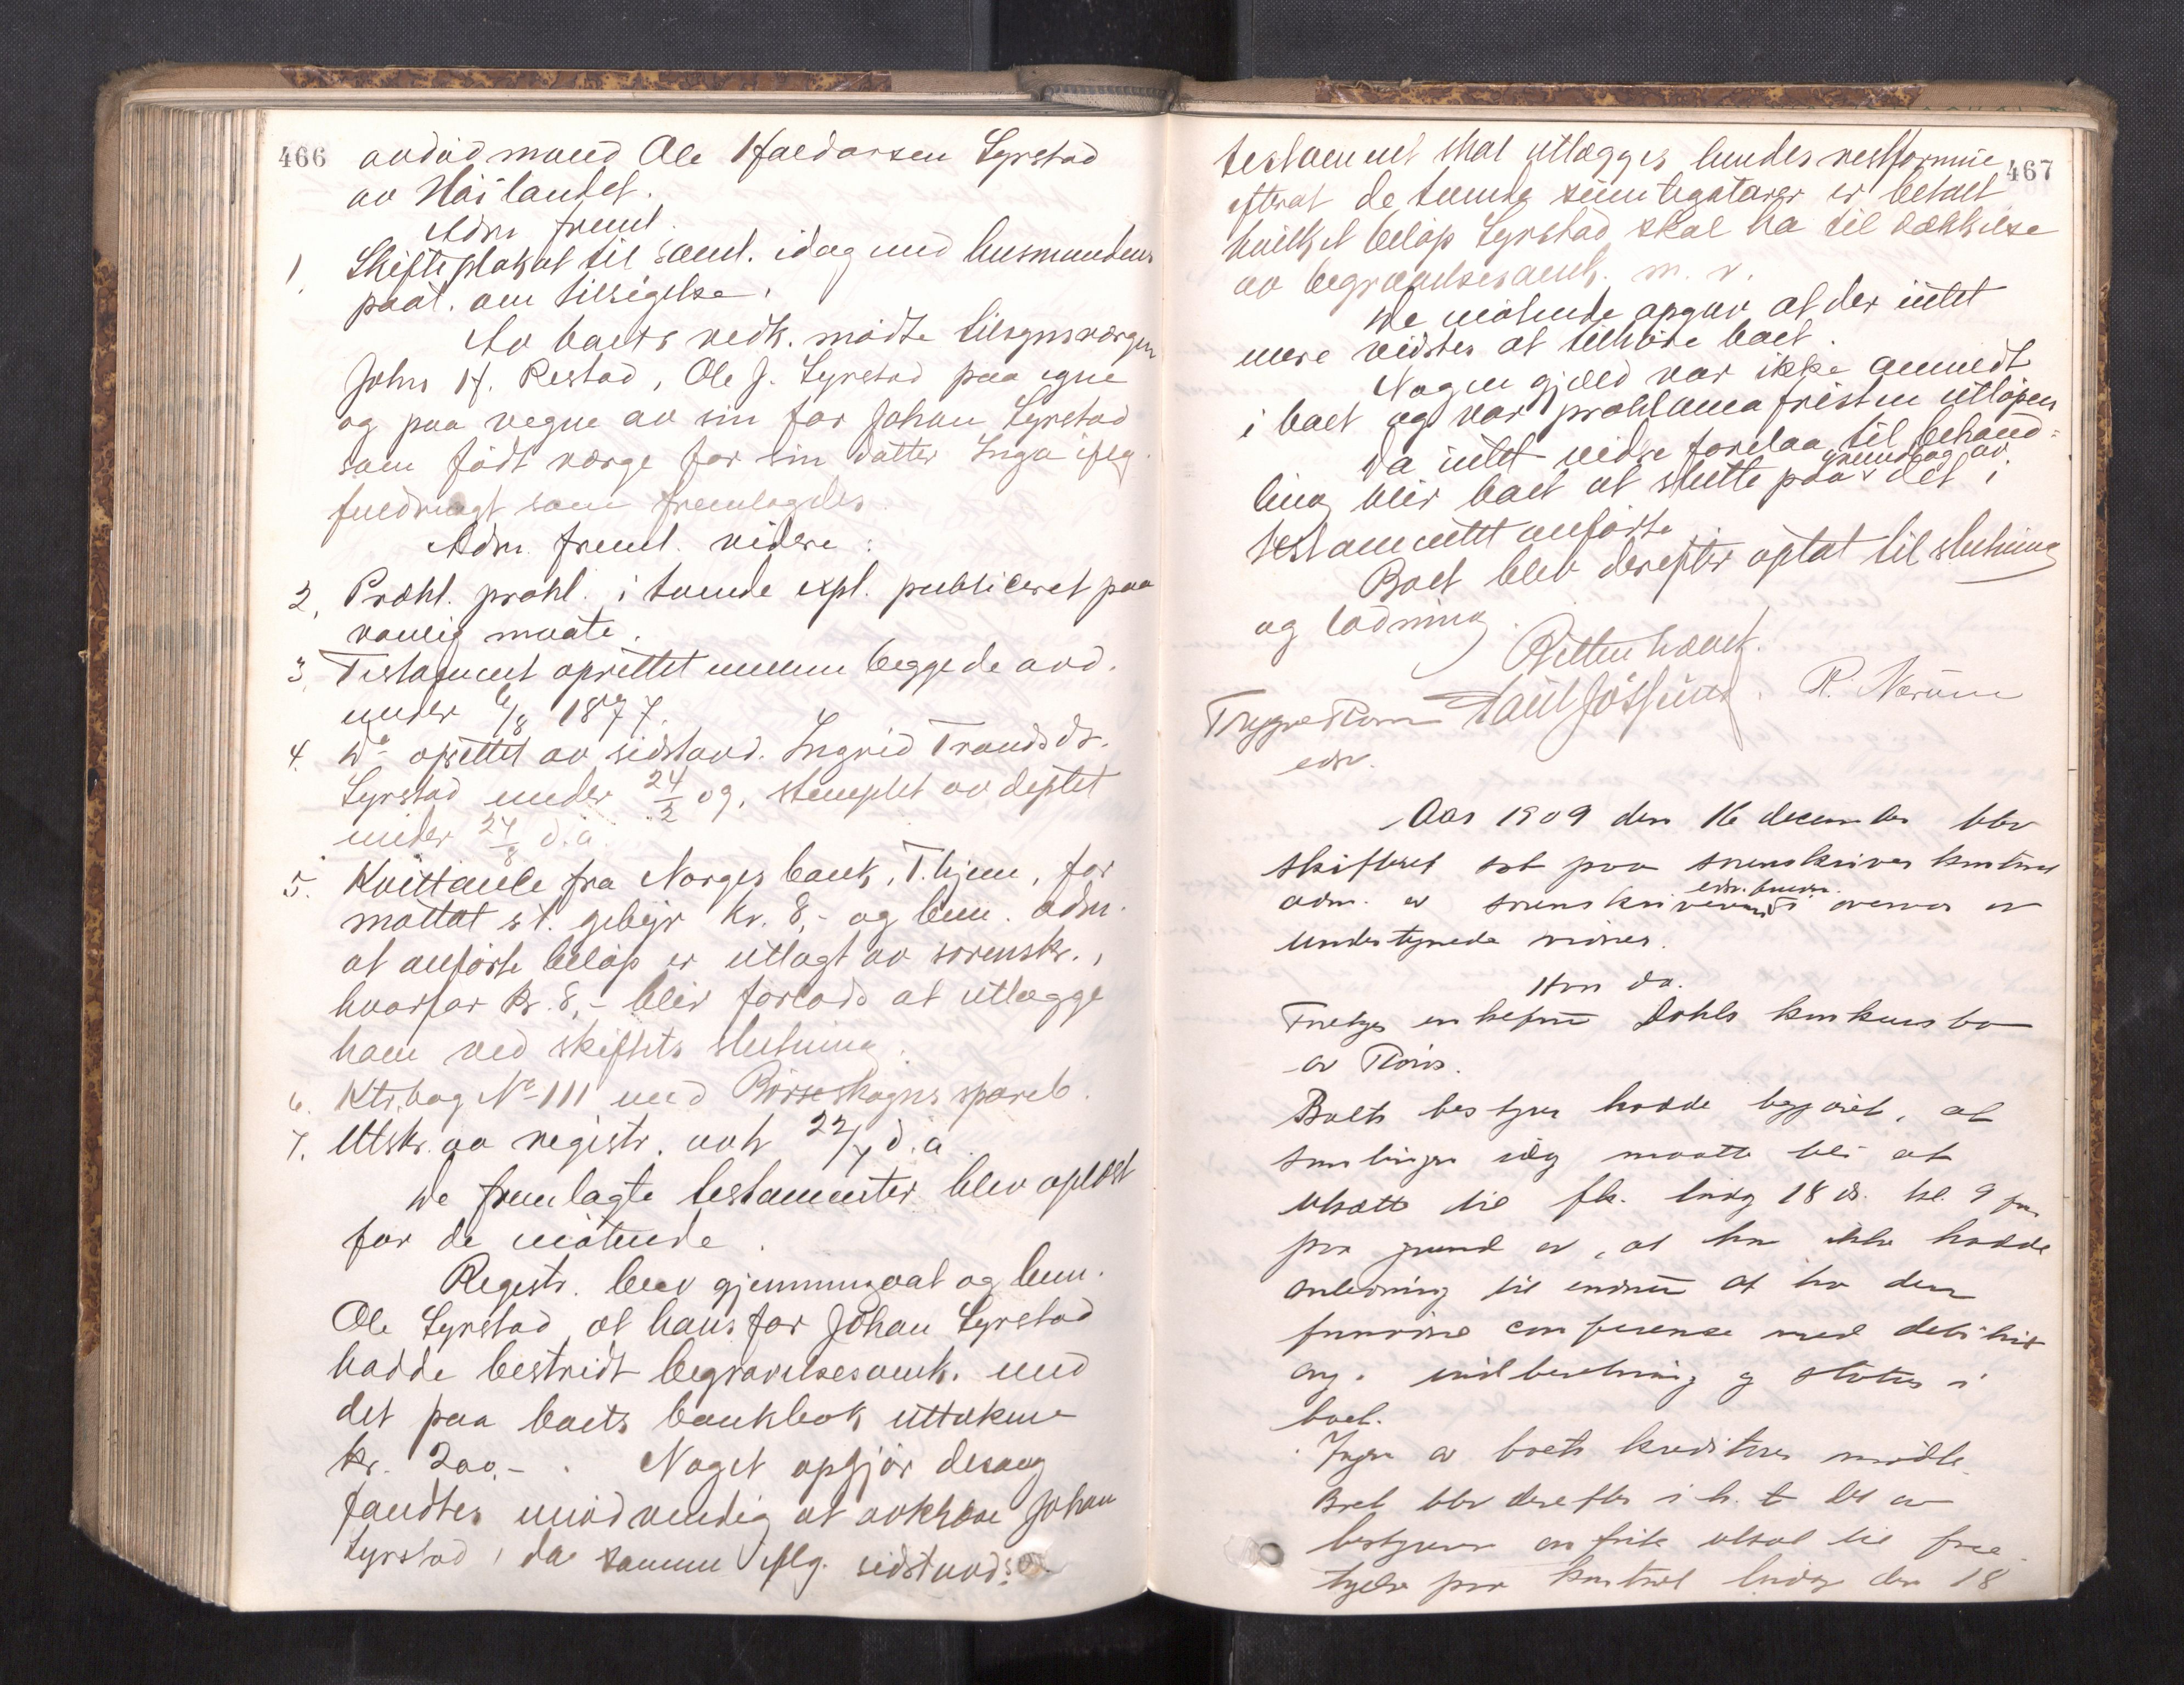 466
avdød mand Ole Haldorsen Syrstad
av Hølandet.
Adm. freml.
1. Skifteplakat til saml. idag med husmandens
paat. om tilsigelse.
Av boets vedk. mødte tilsynsværgen
John H. Restad, Ole J. Syrstad paa egne
og paa vegne av sin far Johan Syrstad
som født værge for sin datter Inga iflg.
fuldmagt som fremlagdes
Adm. freml. videre:
2. Prækl. prokl. i tvende expl. publiceret paa
vanlig maate.
3. Testament oprettet mellem begge de avd.
under 6/8 1877.
4. Do oprettet av sidstavd. Ingrid Trondsdr.
Syrstad under 24/2 09, stemplet av deptet
under 24/8 d.a.
5. Kvittance fra Norges bank, T.hjem, for
mottat st. gebyr kr. 8,- og bem. adm.
at anførte beløp er utlagt av sorenskr.,
hvorfor kr. 8,- blir forlods at utlægge
ham ved skiftets slutning.
6. Ktr.bog No 111 med Børseskogns spareb.
7. Utskr. av registr. avh 22/7 d.a.
De fremlagte testamenter blev oplæst
for de møtende.
Registr. blev gjennemgaat og bem.
Ole Syrstad, at hans far Johan Syrstad
hadde bestridt begravelsesomk. med
det paa boets bankbok uttakne
kr. 200,-. Noget opgjør desang
fandtes unødvendig at avkræve Johan
Syrstad, da samme iflg. sidstavds.
467
testament skal utlægges hendes restformue
efterat de tvende sumlegatarer er betalt
hvilket beløp Syrstad skal ha til dækkelse
av begravelsesomk. m. v.
De møtende opgav at der intet
mere vidstes at tilhøre boet.
Nogen gjæld var ikke anmeldt
i boet og var proklamafristen utløpen
Da intet videre forelaa til behand=
ling blir boet at slutte paa grundlag av det i
testamentet anførte
Boet blev derefter optat til slutning
og lodning.
Retten hævet.
Paul Jössund. R. Nerum
Trygve Rom
edsv.
Aar 1909 den 16 december blev
skifteret sat paa sorenskriverkontoret
adm. av sorenskriverens edsv. fuldm. i overvær av
undertegnede vidner.
Hvor da.
Foretoges enkefru Dahls konkursbo
av Rom.
Boets bestyrer hadde begjæret, at
samlingen idag maatte bli at
utsætte til fk. lørdag 18 ds. kl. 9 fm
paa grund av, at han ikke hadde
anledning til endnu at ha den
fornødne conferense med debitrix
ang. indberetning og status i
boet.
Ingen av boets kreditorer mødte.
Boet blev derefter i h. t. det av
bestyreren anførte utsat til fore=
tagelse paa kontoret lørdag den 18